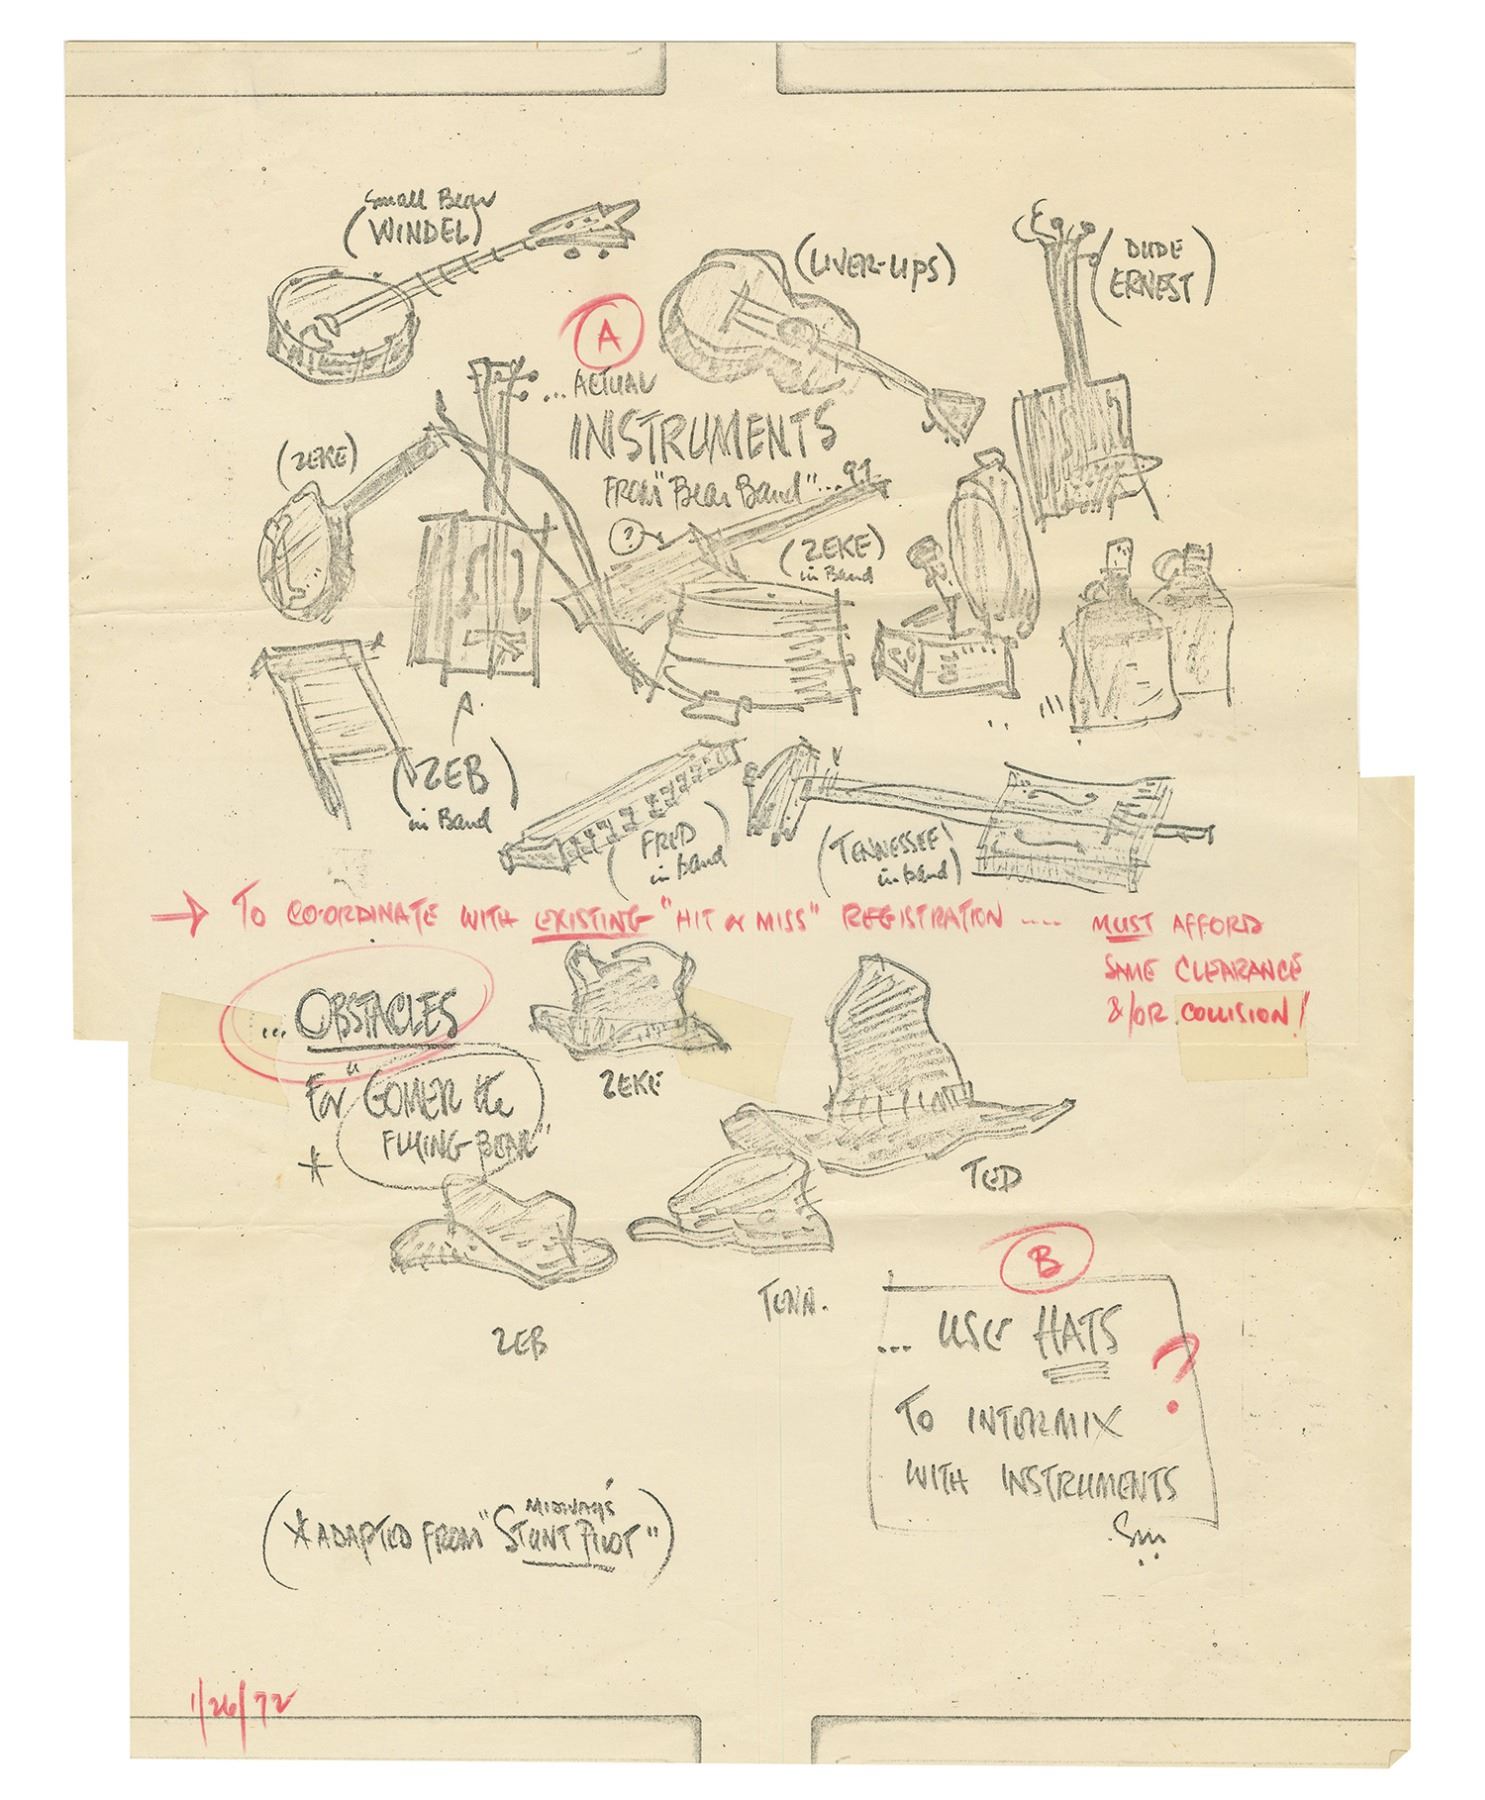 Small Bear
(WINDEL)
(LIVER-LIPS)
(DUDE
ERNEST)
A
... ACTUAL
INSTRUMENTS
FROM "Bear Band"...
(ZEKE)
?
(ZEKE)
in Band
(ZEB)
in Band
(FRED
in band)
(TENNESSEE
in band)
→ TO CO-ORDINATE WITH EXISTING "HIT or MISS" REGISTRATION .... MUST AFFORD
SAME CLEARANCE
&/OR COLLISION!
... OBSTACLES
For "GOMER the
FLYING-BEAR"
*
ZEKE
TED
ZEB
TENN.
B
... USE HATS ?
TO INTERMIX
WITH INSTRUMENTS
(* ADAPTED FROM "MIDWAY'S STUNT PILOT")
1/26/72